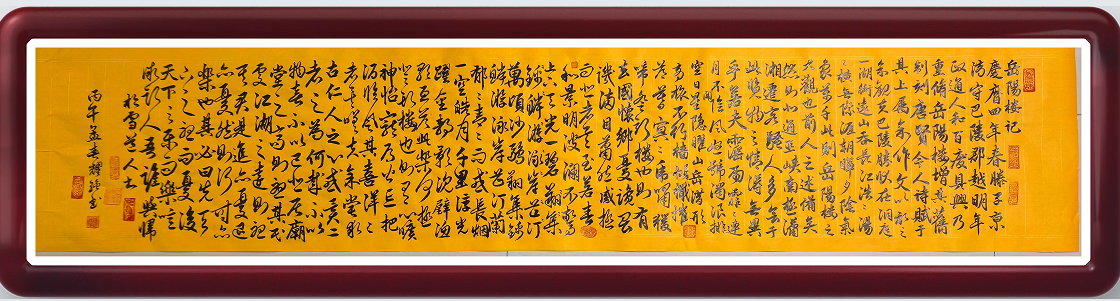 岳陽樓记
慶曆四年春滕子京
谪守巴陵郡越明年
政通人和百廢具興乃
重脩岳陽樓增其舊
制刻唐賢今人诗赋于
其上属余作文以记之
余观夫巴陵勝状在洞庭
一湖銜远山吞長江浩浩湯
湯横无際涯朝暉夕陰氣
象萬千此则岳陽樓之
大觀也前人之述備矣
然则北通巫峡南極瀟
湘遷客騷人多会于
此览物之情得无異
乎若夫霪雨霏霏連
月不開陰风怒號濁浪排
空日星隱曜山岳潜形
商旅不行檣傾楫摧
薄暮冥冥虎啸猿
啼登斯樓也则有
去國懷鄉憂讒畏
譏满目萧然感極
而悲者矣至若春
和景明波瀾不驚
上下天光一碧
萬頃沙鷗翔集錦
鱗游泳岸芷汀蘭
郁郁青青而或長烟
一空皓月千里浮光
躍金静影沉璧渔
歌互答此乐何極
登斯樓也则有心曠
神怡寵辱偕忘把
酒临风其喜洋洋
者矣嗟夫予嘗求
古仁人之心或異二
者之為何哉不以
物喜不以己悲居廟
堂之高则憂其民
處江湖之遠则憂
其君是進亦憂退
亦憂然则何时而
樂也其必曰先天
下之憂而憂後
天下之樂而樂
微斯人吾谁與歸
於雪人士
丙午孟春書